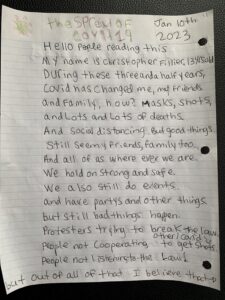 the SPREAD OF
covid 19
Jan 10th
2023
Hello People reading this
My name is Christopher Fillier, I
During these three and a half years,
Covid has changed me, my friends
and Family, how? Masks, Shots,
and Lots and Lots of deaths.
And social distancing. But good things.
Still see my Friends, family too.
And all of as where ever we are.
We hold on strong and safe.
We also still do events.
and have partys and other things.
but still bad things happen.
Protesters trying to break the law
other/covid
People not cooperating to get Shots
People not listening to the Law
but out of all of that I believe that